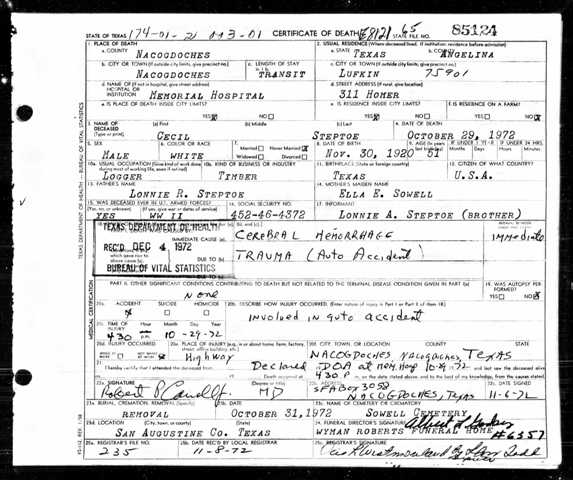 174-01-2 0 3-01
STATE OF TEXAS CERTIFICATE OF DEATH E8121 65 STATE FILE NO. 85124
1. PLACE OF DEATH 2. USUAL RESIDENCE (Where deceased lived. If institution: residence before admission)
a. COUNTY NACOGDOCHES a. STATE TEXAS b. COUNTY ANGELINA
b. CITY OR TOWN (If outside city limits, give precinct no.) c. LENGTH OF STAY c. CITY OR TOWN (If outside city limits, give precinct no.)
NACOGDOCHES TRANSIT LUFKIN 75901
d. NAME OF HOSPITAL OR INSTITUTION (If not in hospital, give street address) d. STREET ADDRESS (If rural, give location)
MEMORIAL HOSPITAL 311 HOMER
e. IS PLACE OF DEATH INSIDE CITY LIMITS? YES NO e. IS RESIDENCE INSIDE CITY LIMITS? YES NO f. IS RESIDENCE ON A FARM? YES NO
3. NAME OF DECEASED (Type or print) (a) First (b) Middle (c) Last 4. DATE OF DEATH
CECIL STEPTOE OCTOBER 29, 1972
5. SEX 6. COLOR OR RACE 7. Married Never Married Widowed Divorced 8. DATE OF BIRTH 9. AGE (In years
MALE WHITE NOV. 30, 1920 51
10a. USUAL OCCUPATION (Give kind of work done during most of working life, even if retired) 10b. KIND OF BUSINESS OR INDUSTRY 11. BIRTHPLACE (State or foreign country) 12. CITIZEN OF WHAT COUNTRY?
LOGGER TIMBER TEXAS U.S.A.
13. FATHER'S NAME 14. MOTHER'S MAIDEN NAME
LONNIE R. STEPTOE ELLA E. SOWELL
15. WAS DECEASED EVER IN U.S. ARMED FORCES? 16. SOCIAL SECURITY NO. 17. INFORMANT
(Yes, no, or unknown) (If yes, give war or dates of service)
YES WW II 452-46-4372 LONNIE A. STEPTOE (BROTHER)
TEXAS DEPARTMENT OF HEALTH
REC'D DEC 4 1972
BUREAU OF VITAL STATISTICS
IMMEDIATE CAUSE (a) Cerebral Hemorrhage Immediate
TRAUMA (Auto Accident)
PART II. OTHER SIGNIFICANT CONDITIONS CONTRIBUTING TO DEATH BUT NOT RELATED TO THE TERMINAL DISEASE CONDITION GIVEN IN PART I(a) 19. WAS AUTOPSY PERFORMED?
None YES NO
20a. ACCIDENT SUICIDE HOMICIDE 20b. DESCRIBE HOW INJURY OCCURRED. (Enter nature of injury in Part I or Part II of item 18)
involved in auto accident
20c. TIME OF INJURY Hour Month Day Year
430 p.m. 10-29-72
20d. INJURY OCCURRED 20e. PLACE OF INJURY (e.g., in or about home, farm, factory, street, office building, etc.) 20f. CITY, TOWN, OR LOCATION COUNTY STATE
Highway NACOGDOCHES, NACOGDOCHES, TEXAS
21. I hereby certify that I attended the deceased Declared DOA at Mem Hosp 10-29-72
Death occurred at 430 P m. on the date stated above, and to the best of my knowledge, from the causes stated.
22a. SIGNATURE (Degree or title) 22b. ADDRESS 22c. DATE SIGNED
MD SFA BOX 3058 NACOGDOCHES, TEXAS 11-6-72
23a. BURIAL, CREMATION, REMOVAL (Specify) 23b. DATE 23c. NAME OF CEMETERY OR CREMATORY
REMOVAL OCTOBER 31, 1972 SOWELL CEMETERY
23d. LOCATION (City, town, or county) (State) 24. FUNERAL DIRECTOR'S SIGNATURE
SAN AUGUSTINE CO. TEXAS WYMAN ROBERTS FUNERAL HOME #6357
25a. REGISTRAR'S FILE NO. 25b. DATE REC'D BY LOCAL REGISTRAR 25c. REGISTRAR'S SIGNATURE
235 11-8-72
TEXAS DEPARTMENT OF HEALTH — BUREAU OF VITAL STATISTICS
MEDICAL CERTIFICATION